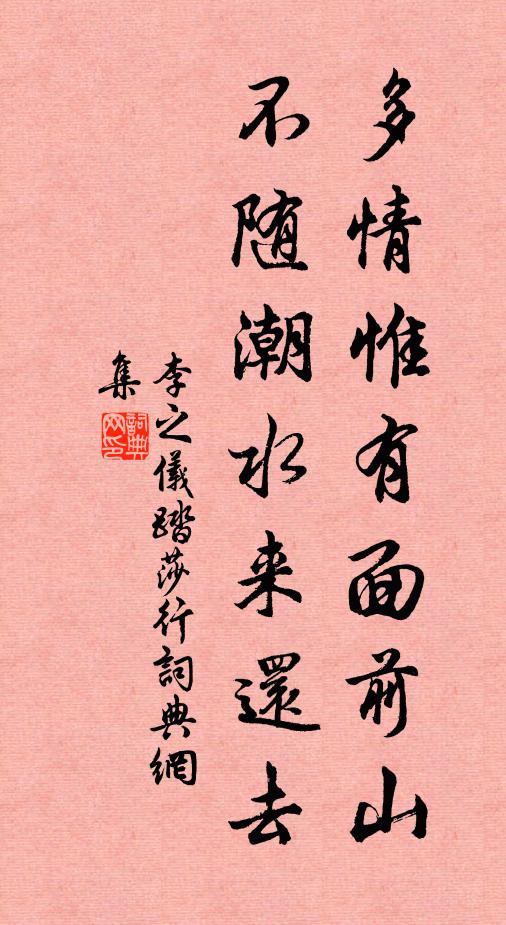 多情惟有面前山
不随潮水来還去
李之儀踏莎行詞典網
集
詞典網印